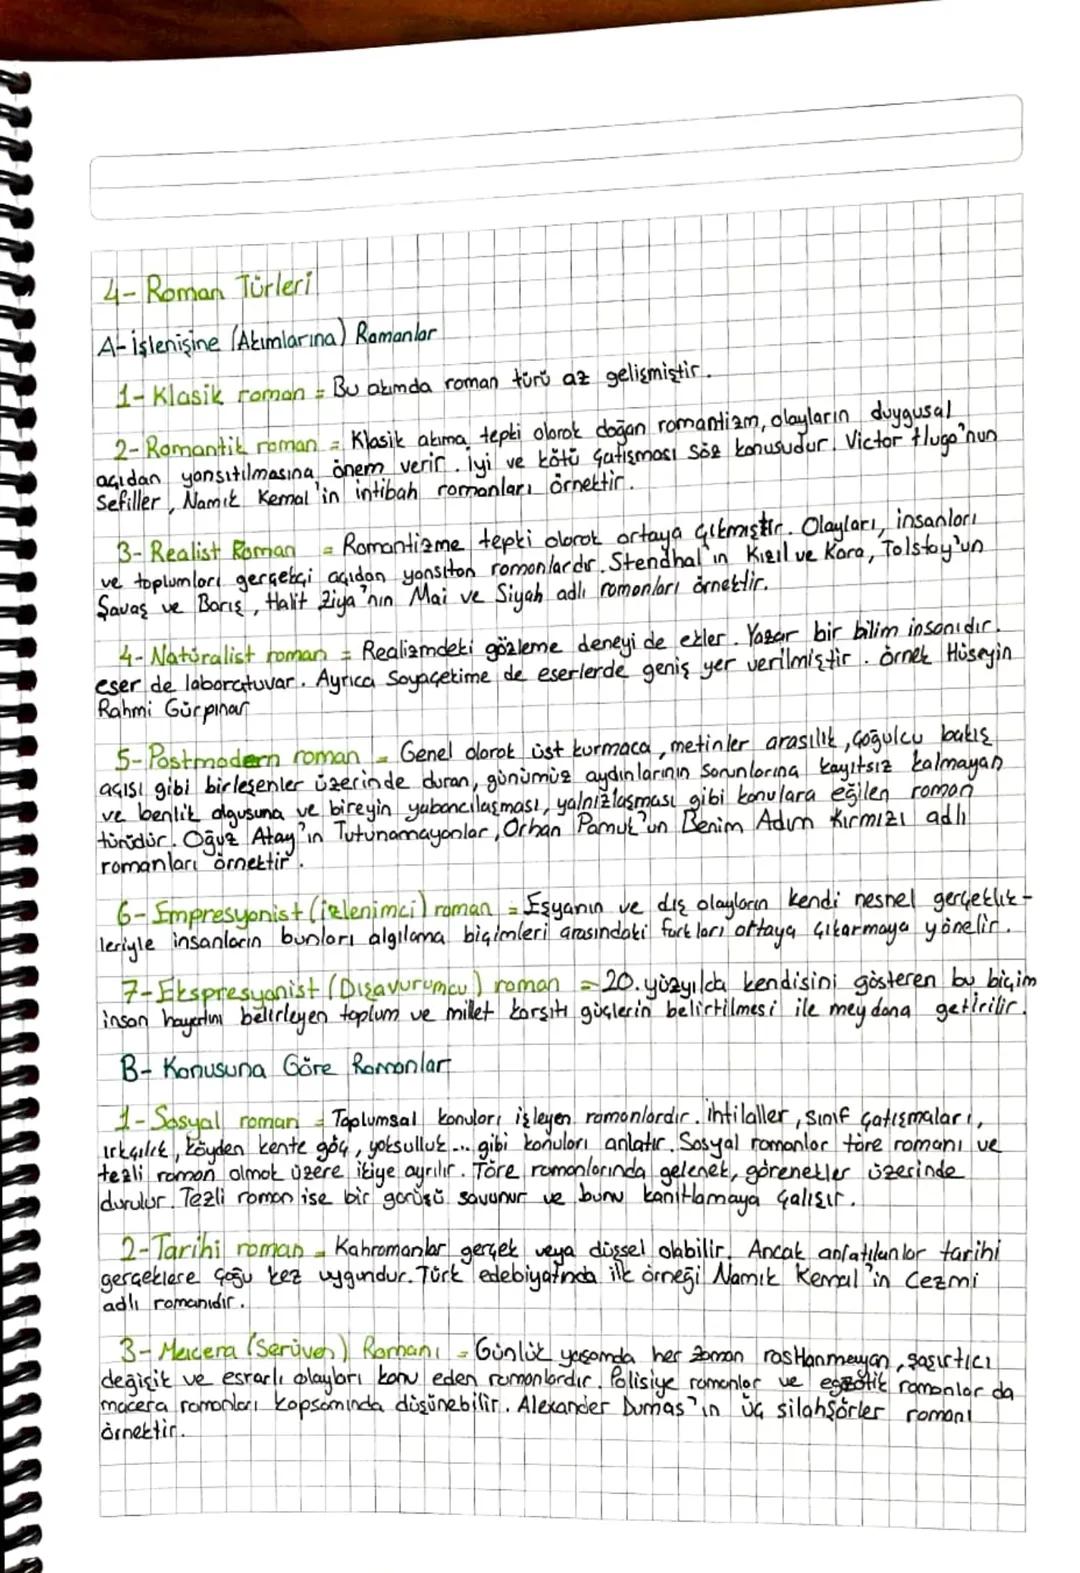 4- Roman Türleri
A- İşlenişine (Akımlarına) Romanlar
1- Klasik roman = Bu akımda roman türü az gelişmiştir.
2- Romantik roman = Klasik akıma tepki olarak doğan romantizm, olayların duygusal
açıdan yansıtılmasına önem verir. İyi ve kötü çatışması söz konusudur. Victor Hugo'nun
Sefiller, Namık Kemal'in intibah romanları örnektir.
3- Realist Roman = Romantizme tepki olarak ortaya çıkmıştır. Olayları, insanları
ve toplumları gerçekçi açıdan yansıtan romanlardır. Stendhal'ın Kızıl ve Kara, Tolstoy'un
Savaş ve Barış, Halit Ziya'nın Mai ve Siyah adlı romanları örnektir.
4- Natüralist roman = Realizmdeki gözleme deneyi de ekler. Yazar bir bilim insanıdır.
eser de laboratuvar. Ayrıca Soyaçekime de eserlerde geniş yer verilmiştir. Örnek Hüseyin
Rahmi Gürpınar
5- Postmodern roman = Genel olarak üst kurmaca, metinler arasılık, çoğulcu bakış
açısı gibi birleşenler üzerinde duran, günümüz aydınlarının sorunlarına kayıtsız kalmayan
ve benlik olgusuna ve bireyin yabancılaşması, yalnızlaşması gibi konulara eğilen roman
türüdür. Oğuz Atay'ın Tutunamayanlar, Orhan Pamuk'un Benim Adım Kırmızı adlı
romanları örnektir.
6- Empresyonist (izlenimci) roman = Eşyanın ve dış olayların kendi nesnel gerçeklik-
leriyle insanların bunları algılama biçimleri arasındaki farkları ortaya çıkarmaya yönelir.
7- Ekspresyonist (Dışavurumcu) roman = 20. yüzyılda kendisini gösteren bu biçim
insan hayatını belirleyen toplum ve millet karşıtı güçlerin belirtilmesi ile meydana getirilir.
B- Konusuna Göre Romanlar
1- Sosyal roman = Toplumsal konuları işleyen romanlardır. İhtilaller, sınıf çatışmaları,
ırkçılık, köyden kente göç, yoksulluk... gibi konuları anlatır. Sosyal romanlar töre romanı ve
tezli roman olmak üzere ikiye ayrılır. Töre romanlarında gelenek, görenekler üzerinde
durulur. Tezli roman ise bir görüşü savunur ve bunu kanıtlamaya çalışır.
2- Tarihi roman = Kahramanlar gerçek veya düşsel olabilir. Ancak anlatılanlar tarihi
gerçeklere çoğu kez uygundur. Türk edebiyatında ilk örneği Namık Kemal'in Cezmi
adlı romanıdır.
3- Macera (Serüven) Romanı = Günlük yaşamda her zaman rastlanmayan, şaşırtıcı
değişik ve esrarlı olayları konu eden romanlardır. Polisiye romanlar ve egzotik romanlar da
macera romanları kapsamında düşünebilir. Alexander Dumas'ın üç silahşörler romanı
örnektir.